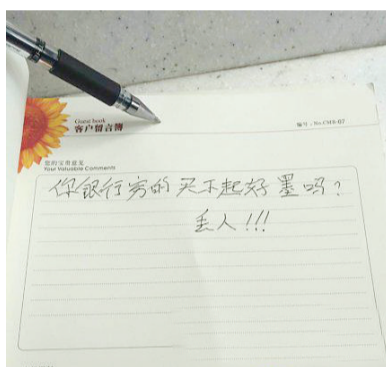 Guest book
客户留言簿
编号：No.CMB-07
您的宝贵意见
Your Valuable Comments
你银行穷的买不起好墨吗？
丢人!!!